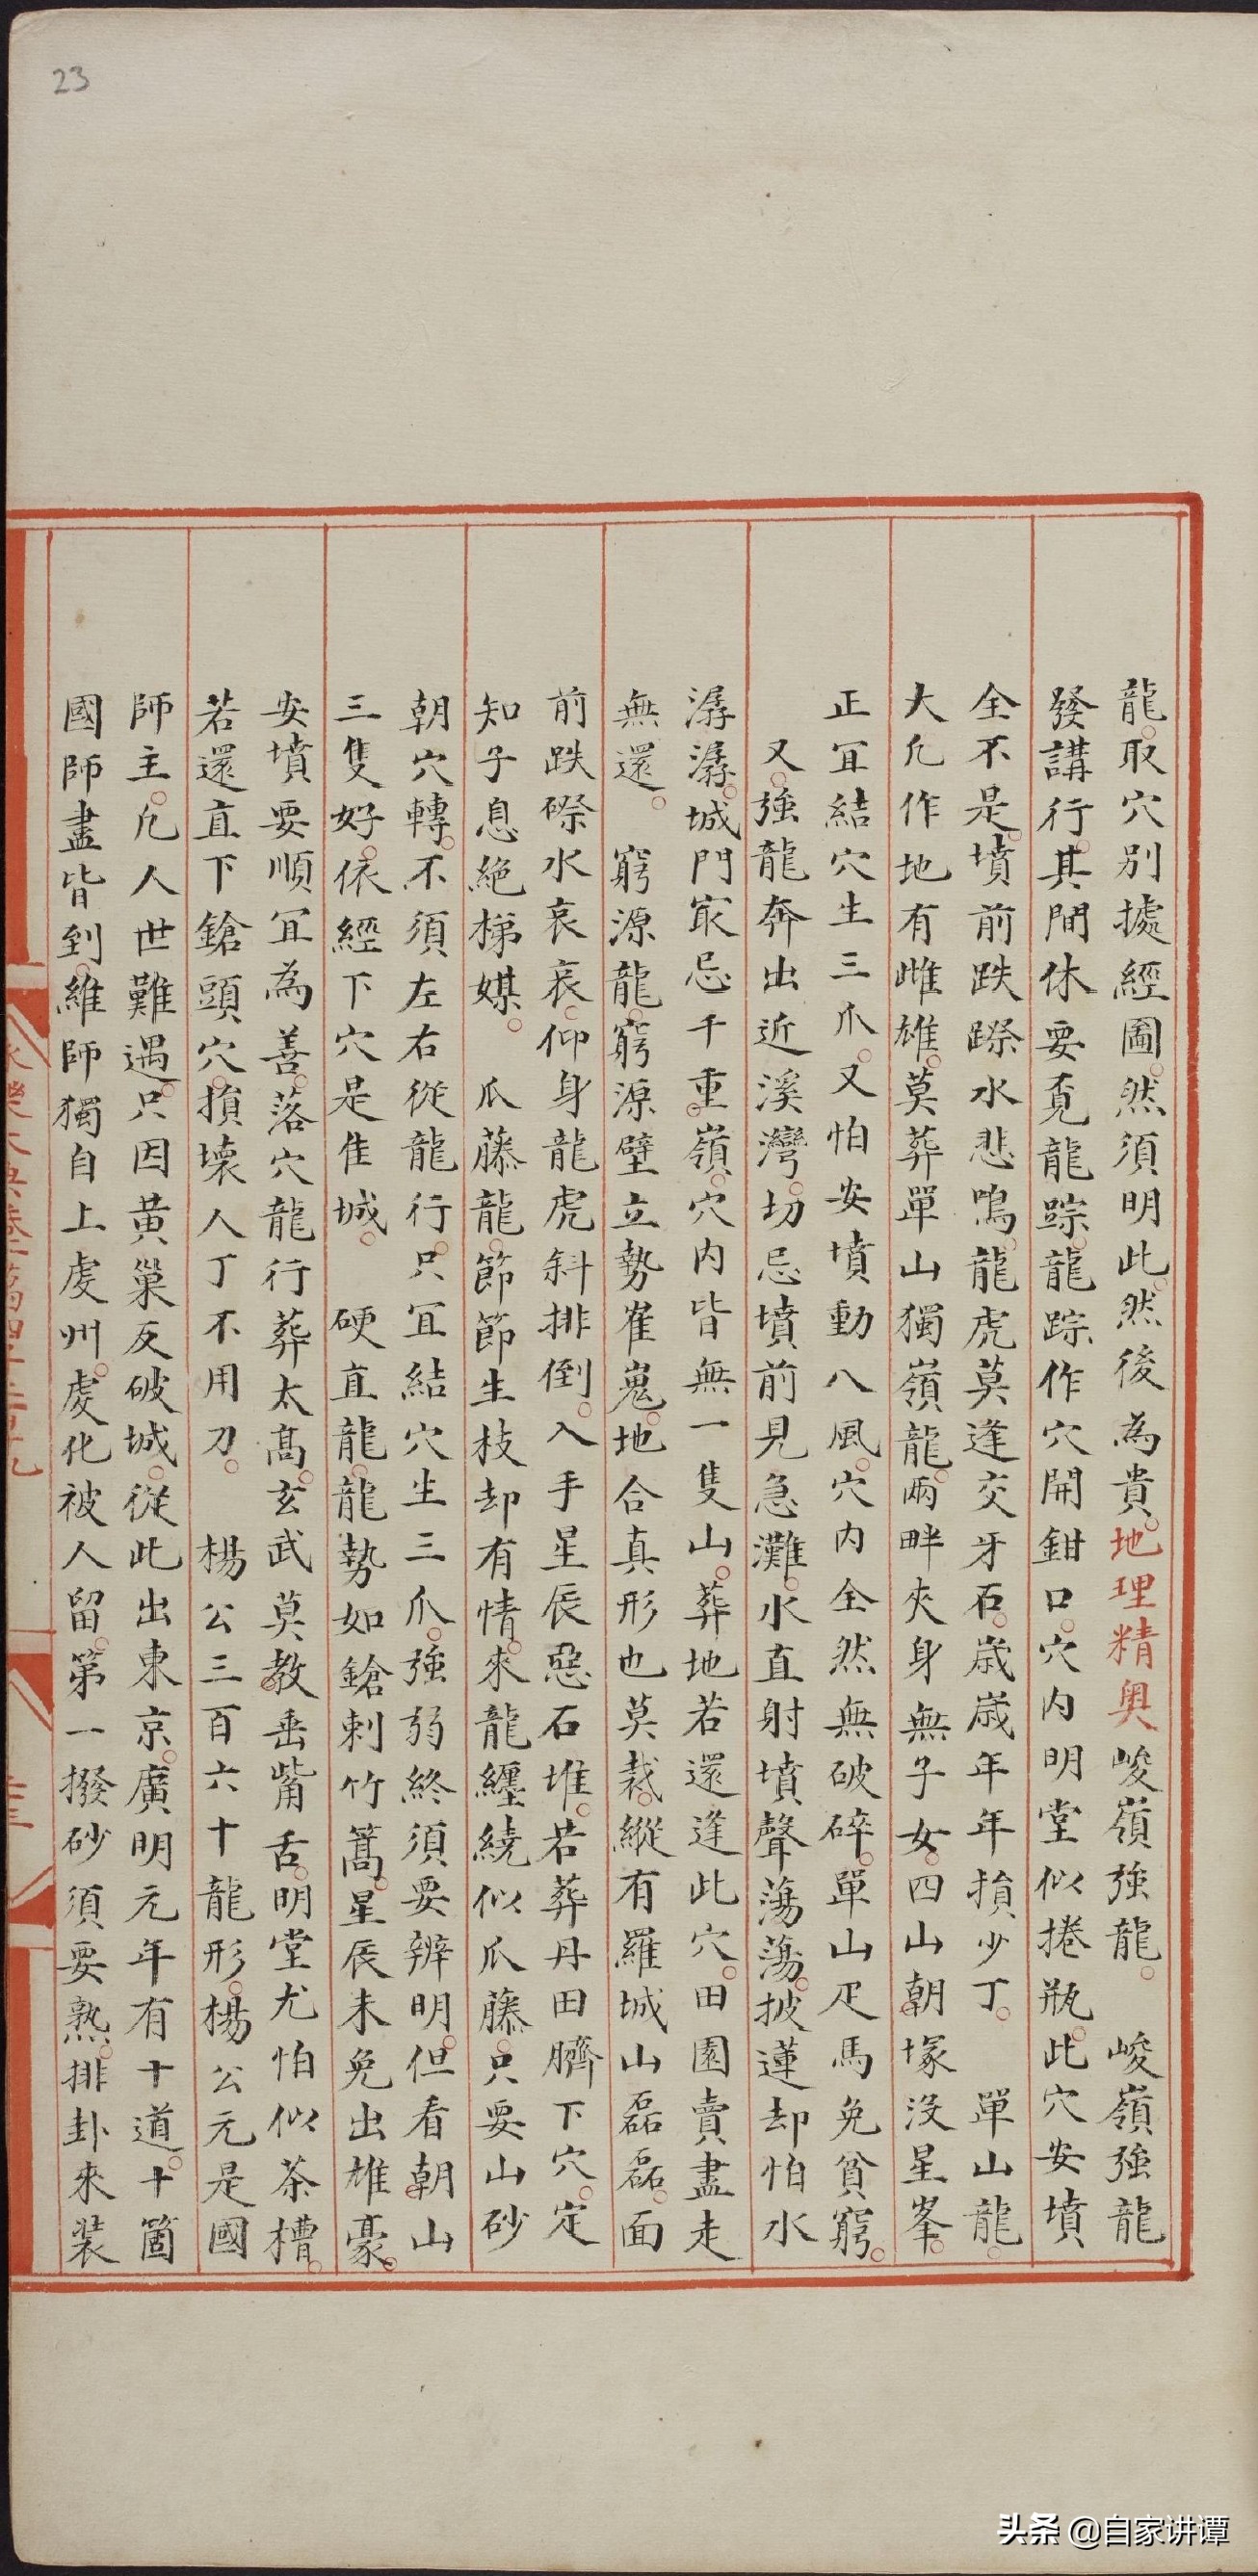 23
龍取穴別據經圖然須明此然後為貴地理精奧峻嶺強龍　峻嶺強龍
發講行其間休要覓龍踪龍踪作穴開鉗口穴內明堂似捲瓶此穴安墳
全不是墳前跌蹘水悲鳴龍虎莫逢交牙石歲歲年年損少丁　單山龍
大凡作地有雌雄莫葬單山獨嶺龍兩畔夾身無子女四山朝塚沒星峯
正冝結穴生三爪又怕安墳動八風穴內全然無破碎單山疋馬免貧窮
又強龍奔出近溪灣切忌墳前見急灘水直射墳聲蕩蕩披蓮却怕水
潺潺城門㝡忌千重嶺穴內皆無一隻山葬地若還逢此穴田園賣盡走
無還　窮源龍窮源壁立勢崔嵬地合真形也莫裁縱有羅城山磊磊面
前跌磜水哀哀仰身龍虎斜排倒入手星辰惡石堆若葬丹田臍下穴定
知子息絕梯媒　瓜藤龍節節生枝却有情來龍纏繞似瓜藤只要山砂
朝穴轉不須左右從龍行只冝結穴生三爪強弱終須要辨明但看朝山
三隻好依經下穴是佳城　硬直龍龍勢如鎗刺竹篙星辰未免出雄豪
安墳要順冝為善落穴龍行葬太高玄武莫教垂觜舌明堂尤怕似茶槽
若還直下鎗頭穴損壞人丁不用刀　楊公三百六十龍形楊公元是國
師主凡人世難遇只因黃巢反破城從此出東京廣明元年有十道十箇
國師盡皆到維師獨自上虔州虔化被人留第一撥砂須要熟排卦來裝
永樂大典卷一萬四千二百十九
头条 @自家讲谭